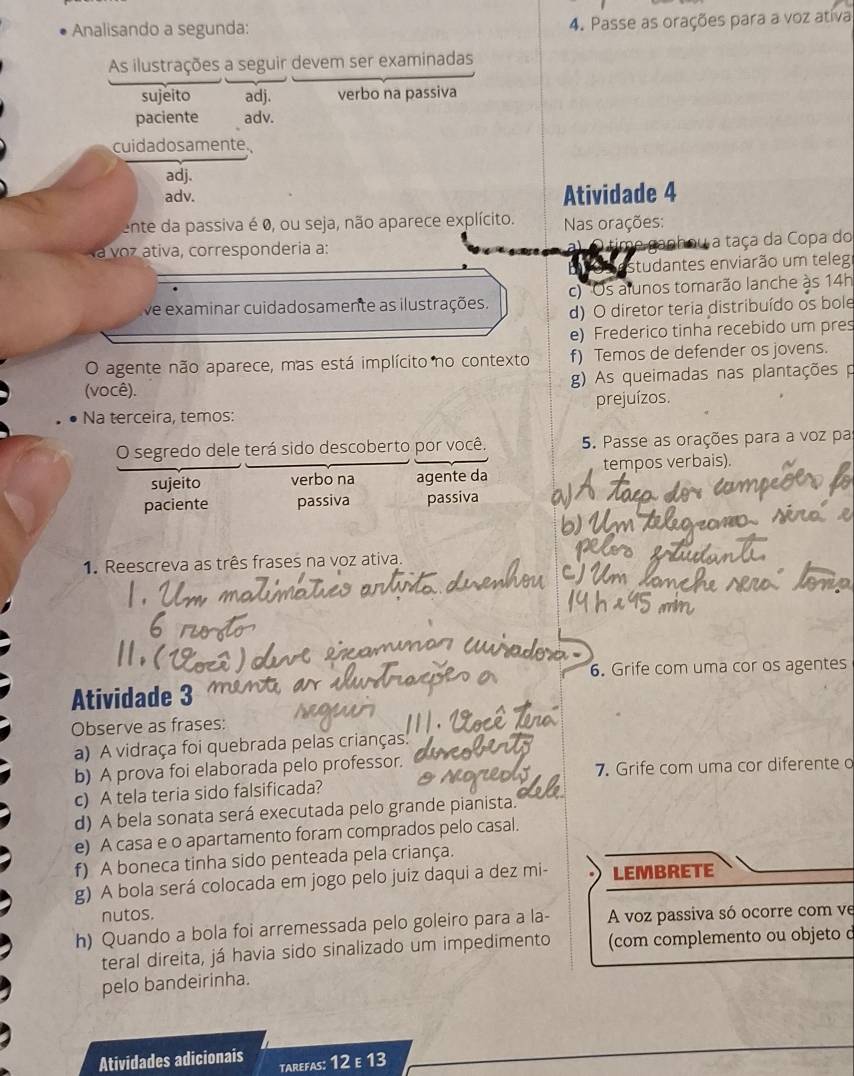 • Analisando a segunda:
As ilustrações a seguir devem ser examinadas
sujeito adj. verbo na passiva
paciente adv.
cuidadosamente.
adj.
adv.
ente da passiva é 0, ou seja, não aparece explícito.
a voz ativa, corresponderia a:
ve examinar cuidadosamente as ilustrações.
O agente não aparece, mas está implícito no contexto
(você).
• Na terceira, temos:
O segredo dele terá sido descoberto por você.
sujeito verbo na agente da
paciente passiva passiva
1. Reescreva as três frases na voz ativa.
1. Um matimático artista desenhou
6 rostos
11. (Você) deve examinar cuidadosa-
mente as ilustrações a
seguir
111. Você terá
descoberto
o segredo
dele
Atividade 3
Observe as frases:
a) A vidraça foi quebrada pelas crianças.
b) A prova foi elaborada pelo professor.
c) A tela teria sido falsificada?
d) A bela sonata será executada pelo grande pianista.
e) A casa e o apartamento foram comprados pelo casal.
f) A boneca tinha sido penteada pela criança.
g) A bola será colocada em jogo pelo juiz daqui a dez mi-
nutos.
h) Quando a bola foi arremessada pelo goleiro para a la-
teral direita, já havia sido sinalizado um impedimento
pelo bandeirinha.
Atividades adicionais TAREFAS: 12 E 13
4. Passe as orações para a voz ativa
Atividade 4
Nas orações:
a) O time ganhou a taça da Copa do
estudantes enviarão um teleg
c) Os alunos tomarão lanche às 14h
d) O diretor teria distribuído os bole
e) Frederico tinha recebido um pres
f) Temos de defender os jovens.
g) As queimadas nas plantações p
prejuízos.
5. Passe as orações para a voz pa
tempos verbais).
a) A taça dos campeões fo
b) Um telegrama será e
pelos estudante
c) Um lanche será toma
14 h e 45 min
6. Grife com uma cor os agentes
7. Grife com uma cor diferente o
LEMBRETE
A voz passiva só ocorre com ve
(com complemento ou objeto d